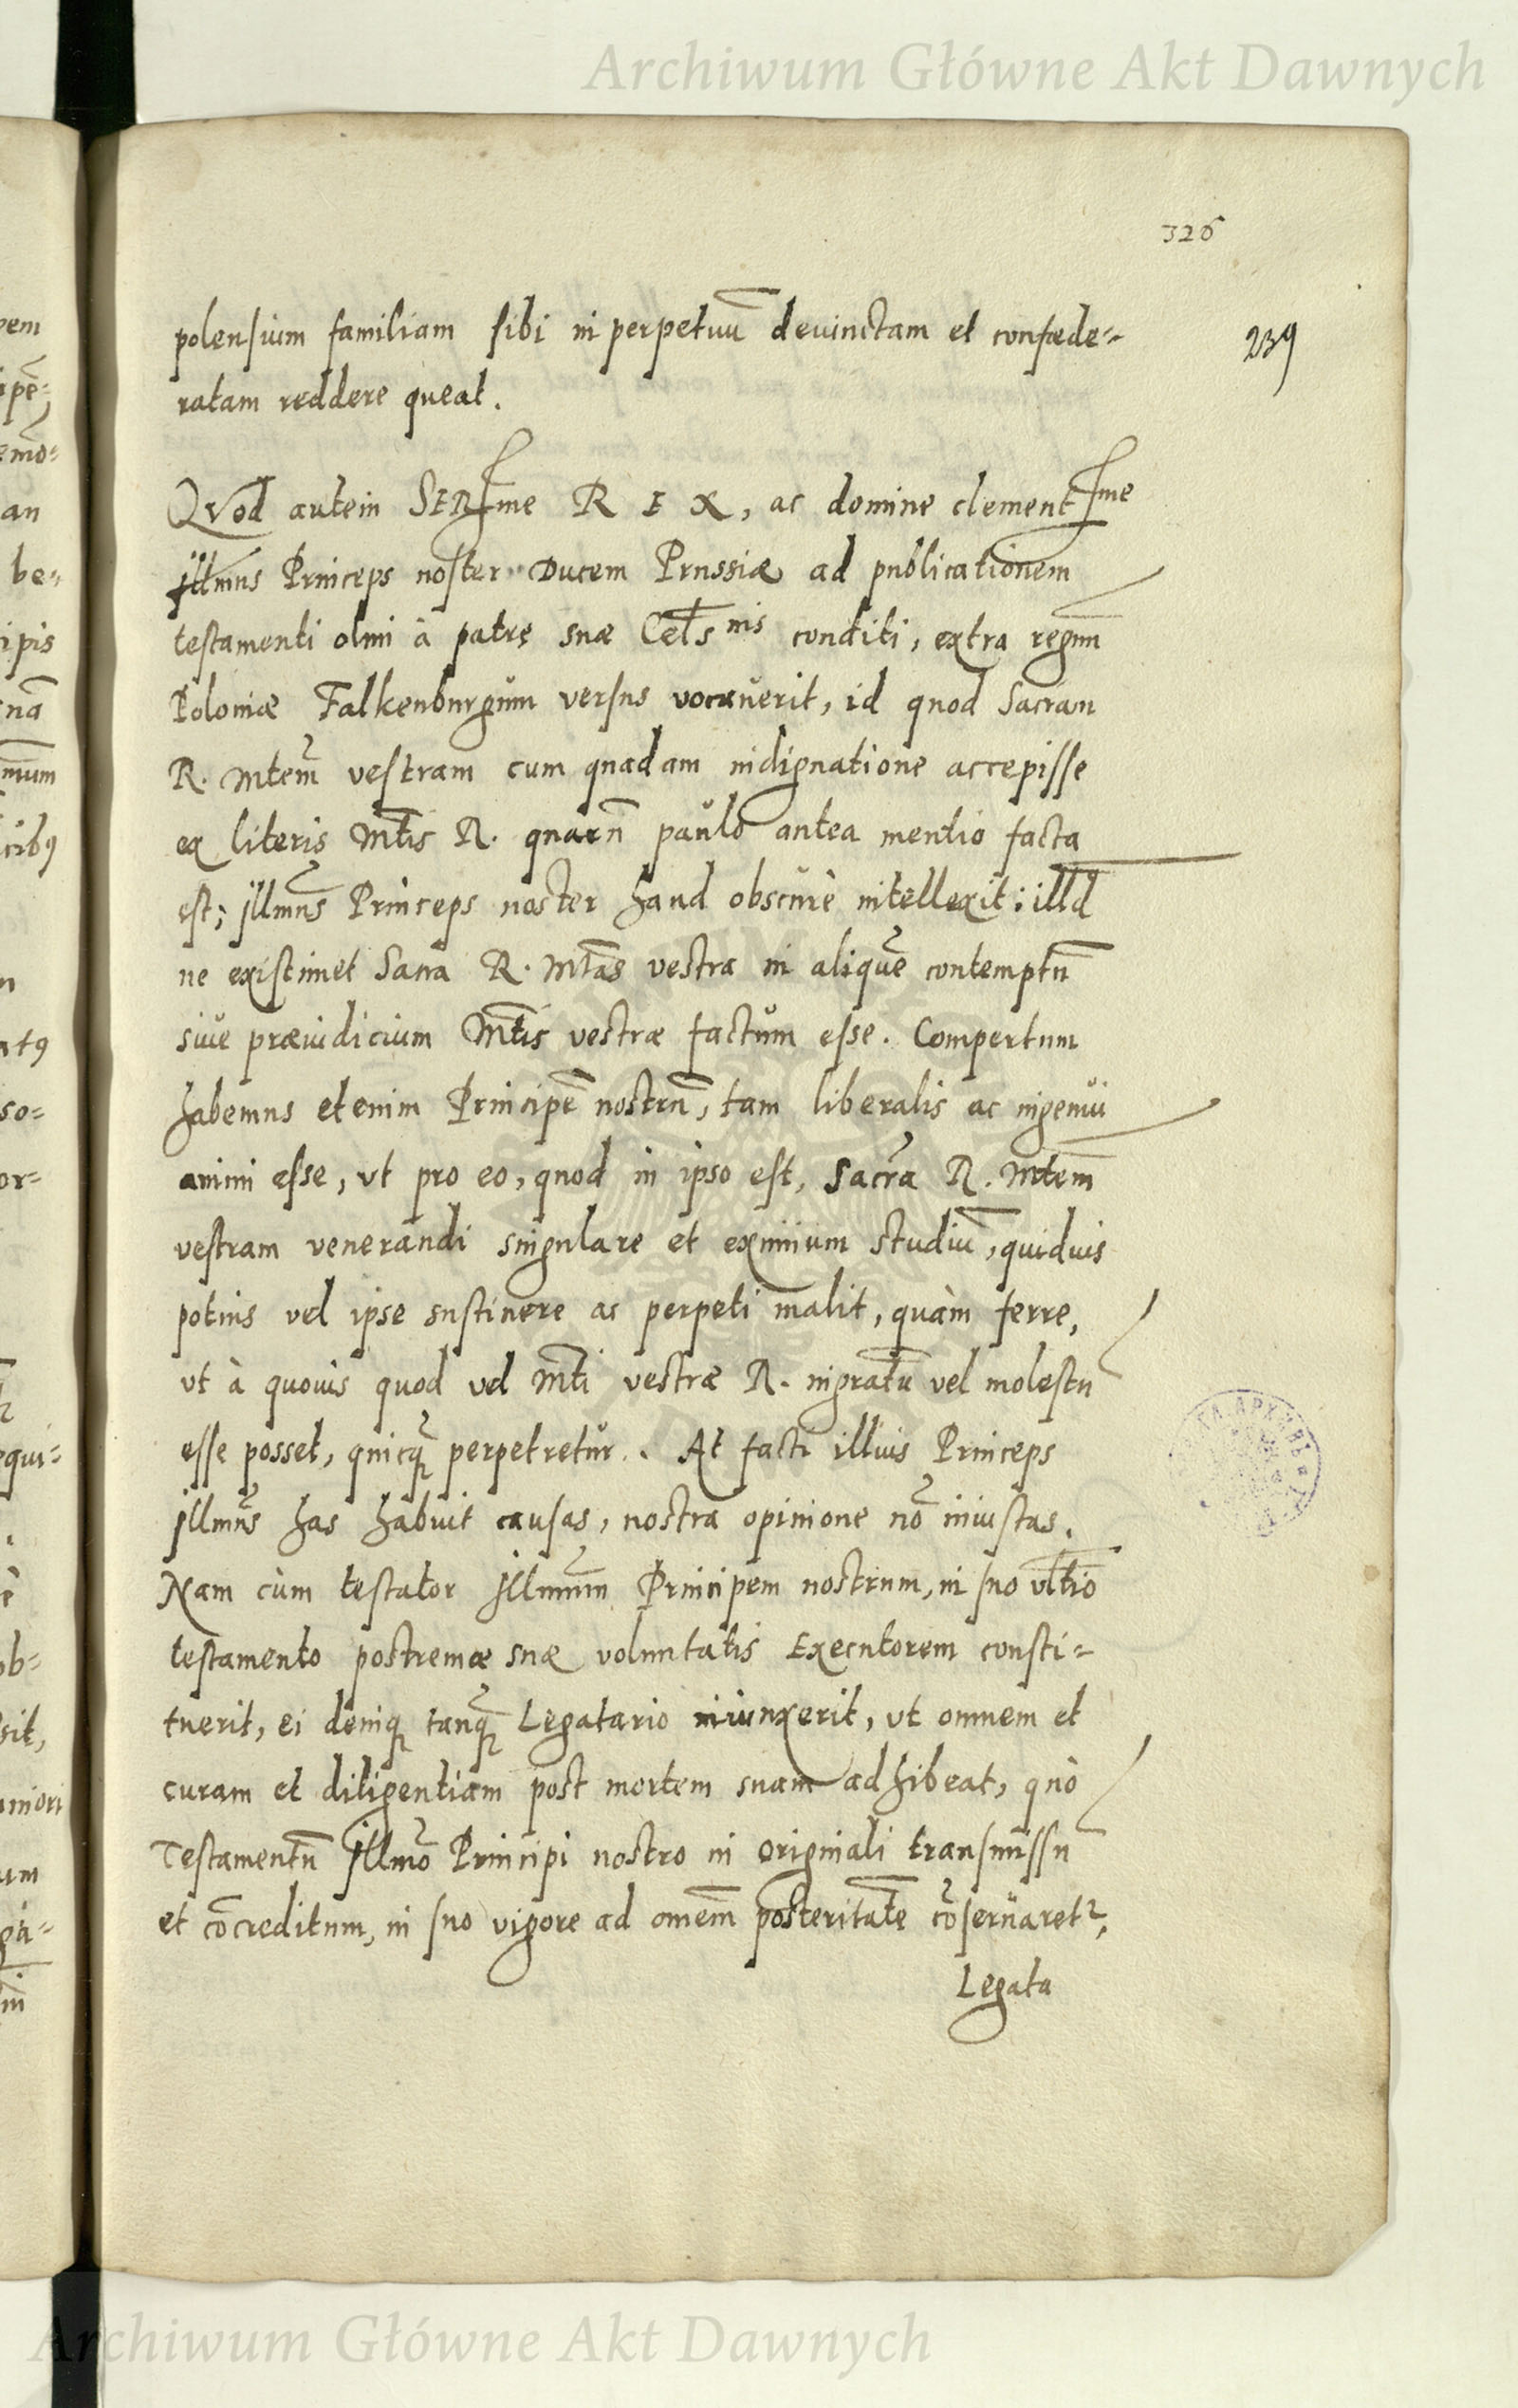 Archiwum Główne Akt Dawnych
326
239
polensium familiam sibi in perpetuū deuinctam et confœde=
ratam reddere queat.
QVod autem SERme REX, ac domine clementme
Jllmus Princeps noster Ducem Prussiæ ad publicationem
testamenti olim à patre suæ Celsnis conditi, extra regnū
Poloniæ Falkenburgum versus vocauerit, id quod Sacram
R. Mtem vestram cum quadam indignatione accepisse
ex literis Mtis R. quarū paulo antea mentio facta
est; Jllmus Princeps noster haud obscurè intellexit: illd
ne existimet Sacra R. Mtas vestra in aliquē contemptū
siue præiudicium Mtis vestræ factum esse. Compertum
habemus etenim Principē nostrū, tam liberalis ac ingenui
animi esse, vt pro eo, quod in ipso est, Sacrā R. Mtem
vestram venerandi singulare et eximium studiū, quiduis
potius vel ipse sustinere ac perpeti malit, quàm ferre,
vt à quouis quod vel Mti vestræ R. ingratū vel molestū
esse posset, quicq̃ perpetretur. At facti illius Princeps
Jllmus has habuit causas, nostra opinione nō iniustas.
Nam cùm testator Jllmum Principem nostrum, in suo vltīo
testamento postremæ suæ voluntatis Executorem consti=
tuerit, ei deniq tanq̃ Legatario iniunxerit, vt omnem et
curam et diligentiam post mortem suam adhibeat, quò
Testamentū Jllmo Principi nostro in originali transmissū
et cōcreditum, in suo vigore ad omēm posteritatē cōseruaret2,
Legata
Archiwum Główne Akt Dawnych